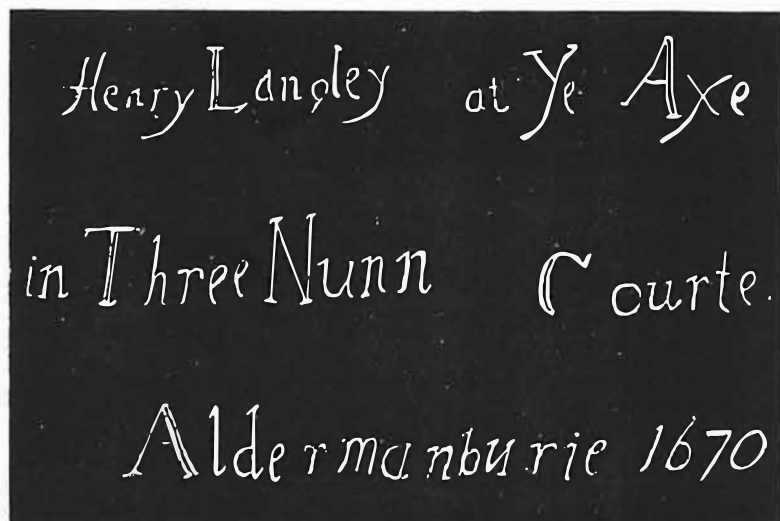 Henry Langley at Ye Axe
in Three Nunn Courte.
Aldermanburie 1670